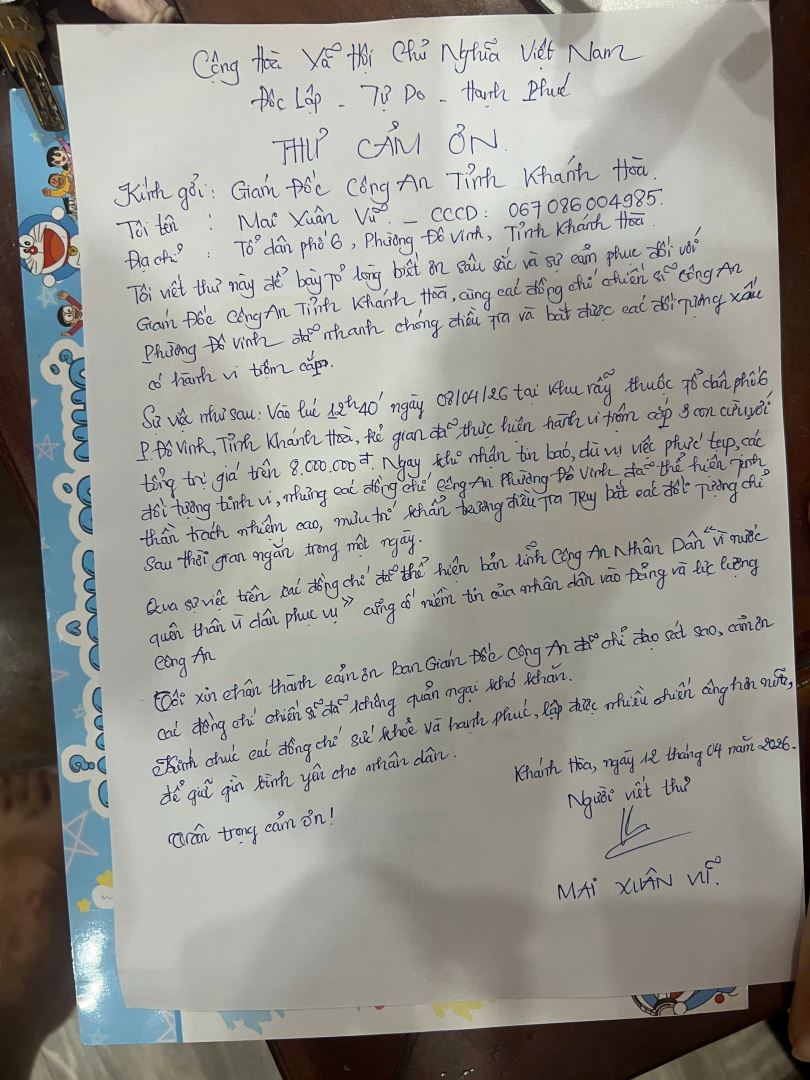 Cộng Hoà Xã Hội Chủ Nghĩa Việt Nam
Độc Lập - Tự Do - Hạnh Phúc
THƯ CẢM ƠN.
Kính gởi : Giám Đốc Công An Tỉnh Khánh Hòa.
Tôi tên : Mai Xuân Vũ. - CCCD: 067086004985.
Địa chỉ : Tổ dân phố 6, Phường Đô Vinh, Tỉnh Khánh Hoà.
Tôi viết thư này để bày tỏ lòng biết ơn sâu sắc và sự cảm phục đối với
Giám Đốc Công An Tỉnh Khánh Hoà, cùng các đồng chí chiến sĩ Công An
Phường Đô Vinh đã nhanh chóng điều tra và bắt được các đối tượng xấu
có hành vi trộm cắp.
Sự việc như sau: Vào lúc 12h40' ngày 08/04/26 tại khu rẫy thuộc tổ dân phố 6
P. Đô Vinh, Tỉnh Khánh Hoà, kẻ gian đã thực hiện hành vi trộm cắp 3 con cừu, với
tổng trị giá trên 8.000.000đ. Ngay khi nhận tin báo, dù vụ việc phức tạp, các
đối tượng tinh vi, nhưng các đồng chí Công An Phường Đô Vinh đã thể hiện tinh
thần trách nhiệm cao, mưu trí khẩn trương điều tra truy bắt các đối tượng chỉ
sau thời gian ngắn trong một ngày.
Qua sự việc trên các đồng chí đã thể hiện bản lĩnh Công An Nhân Dân "vì nước
quên thân vì dân phục vụ" củng cố niềm tin của nhân dân vào Đảng và lực lượng
Công An
Tôi xin chân thành cảm ơn ban Giám Đốc Công An đã chỉ đạo sát sao, cảm ơn
các đồng chí chiến sĩ đã không quản ngại khó khăn.
Kính chúc các đồng chí sức khoẻ và hạnh phúc, lập được nhiều chiến công hơn nữa,
để giữ gìn bình yên cho nhân dân.
Trân trọng cảm ơn!
Khánh Hòa, ngày 12 tháng 04 năm 2026.
Người viết thư
MAI XUÂN VŨ.